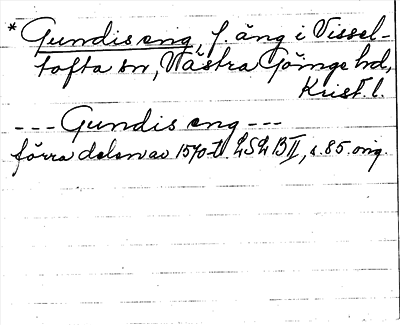 * Gundis eng, f. äng i Vissel-
tofta sn, Västra Göinge hd,
Krist. l.
--- Gundis eng ---
förra delen av 1570-t. LSL BII, s. 85. orig.